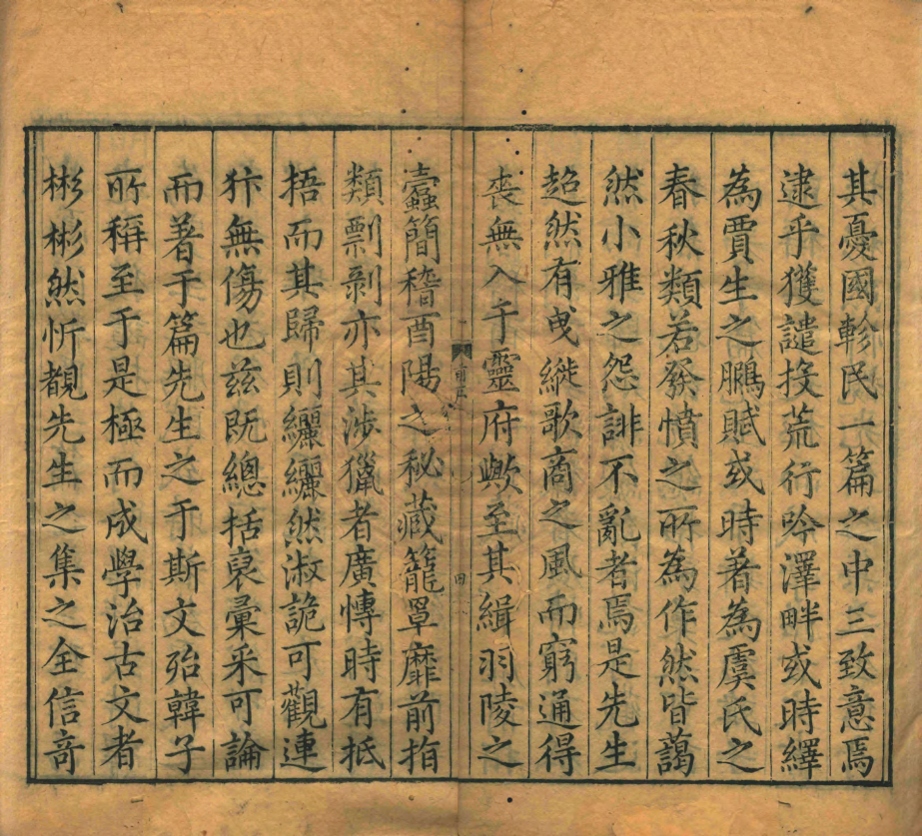 其憂國軫民一篇之中三致意焉
逮乎獲譴投荒行吟澤畔或時繹
為賈生之鵩賦或時著為虞氏之
春秋類若發憤之所為作然皆藹
然小雅之怨誹不亂者焉是先生
超然有曳縰歌商之風而窮通得
喪無入于靈府歟至其緝羽陵之
四
蠹簡稽酉陽之秘藏籠罩靡前指
類剽剝亦其涉獵者廣慱時有抵
捂而其歸則纚纚然淑詭可觀連
犿無傷也兹既總括裒彙采可論
而著于篇先生之于斯文殆韓子
所稱至于是極而成學治古文者
彬彬然忻覩先生之集之全信竒